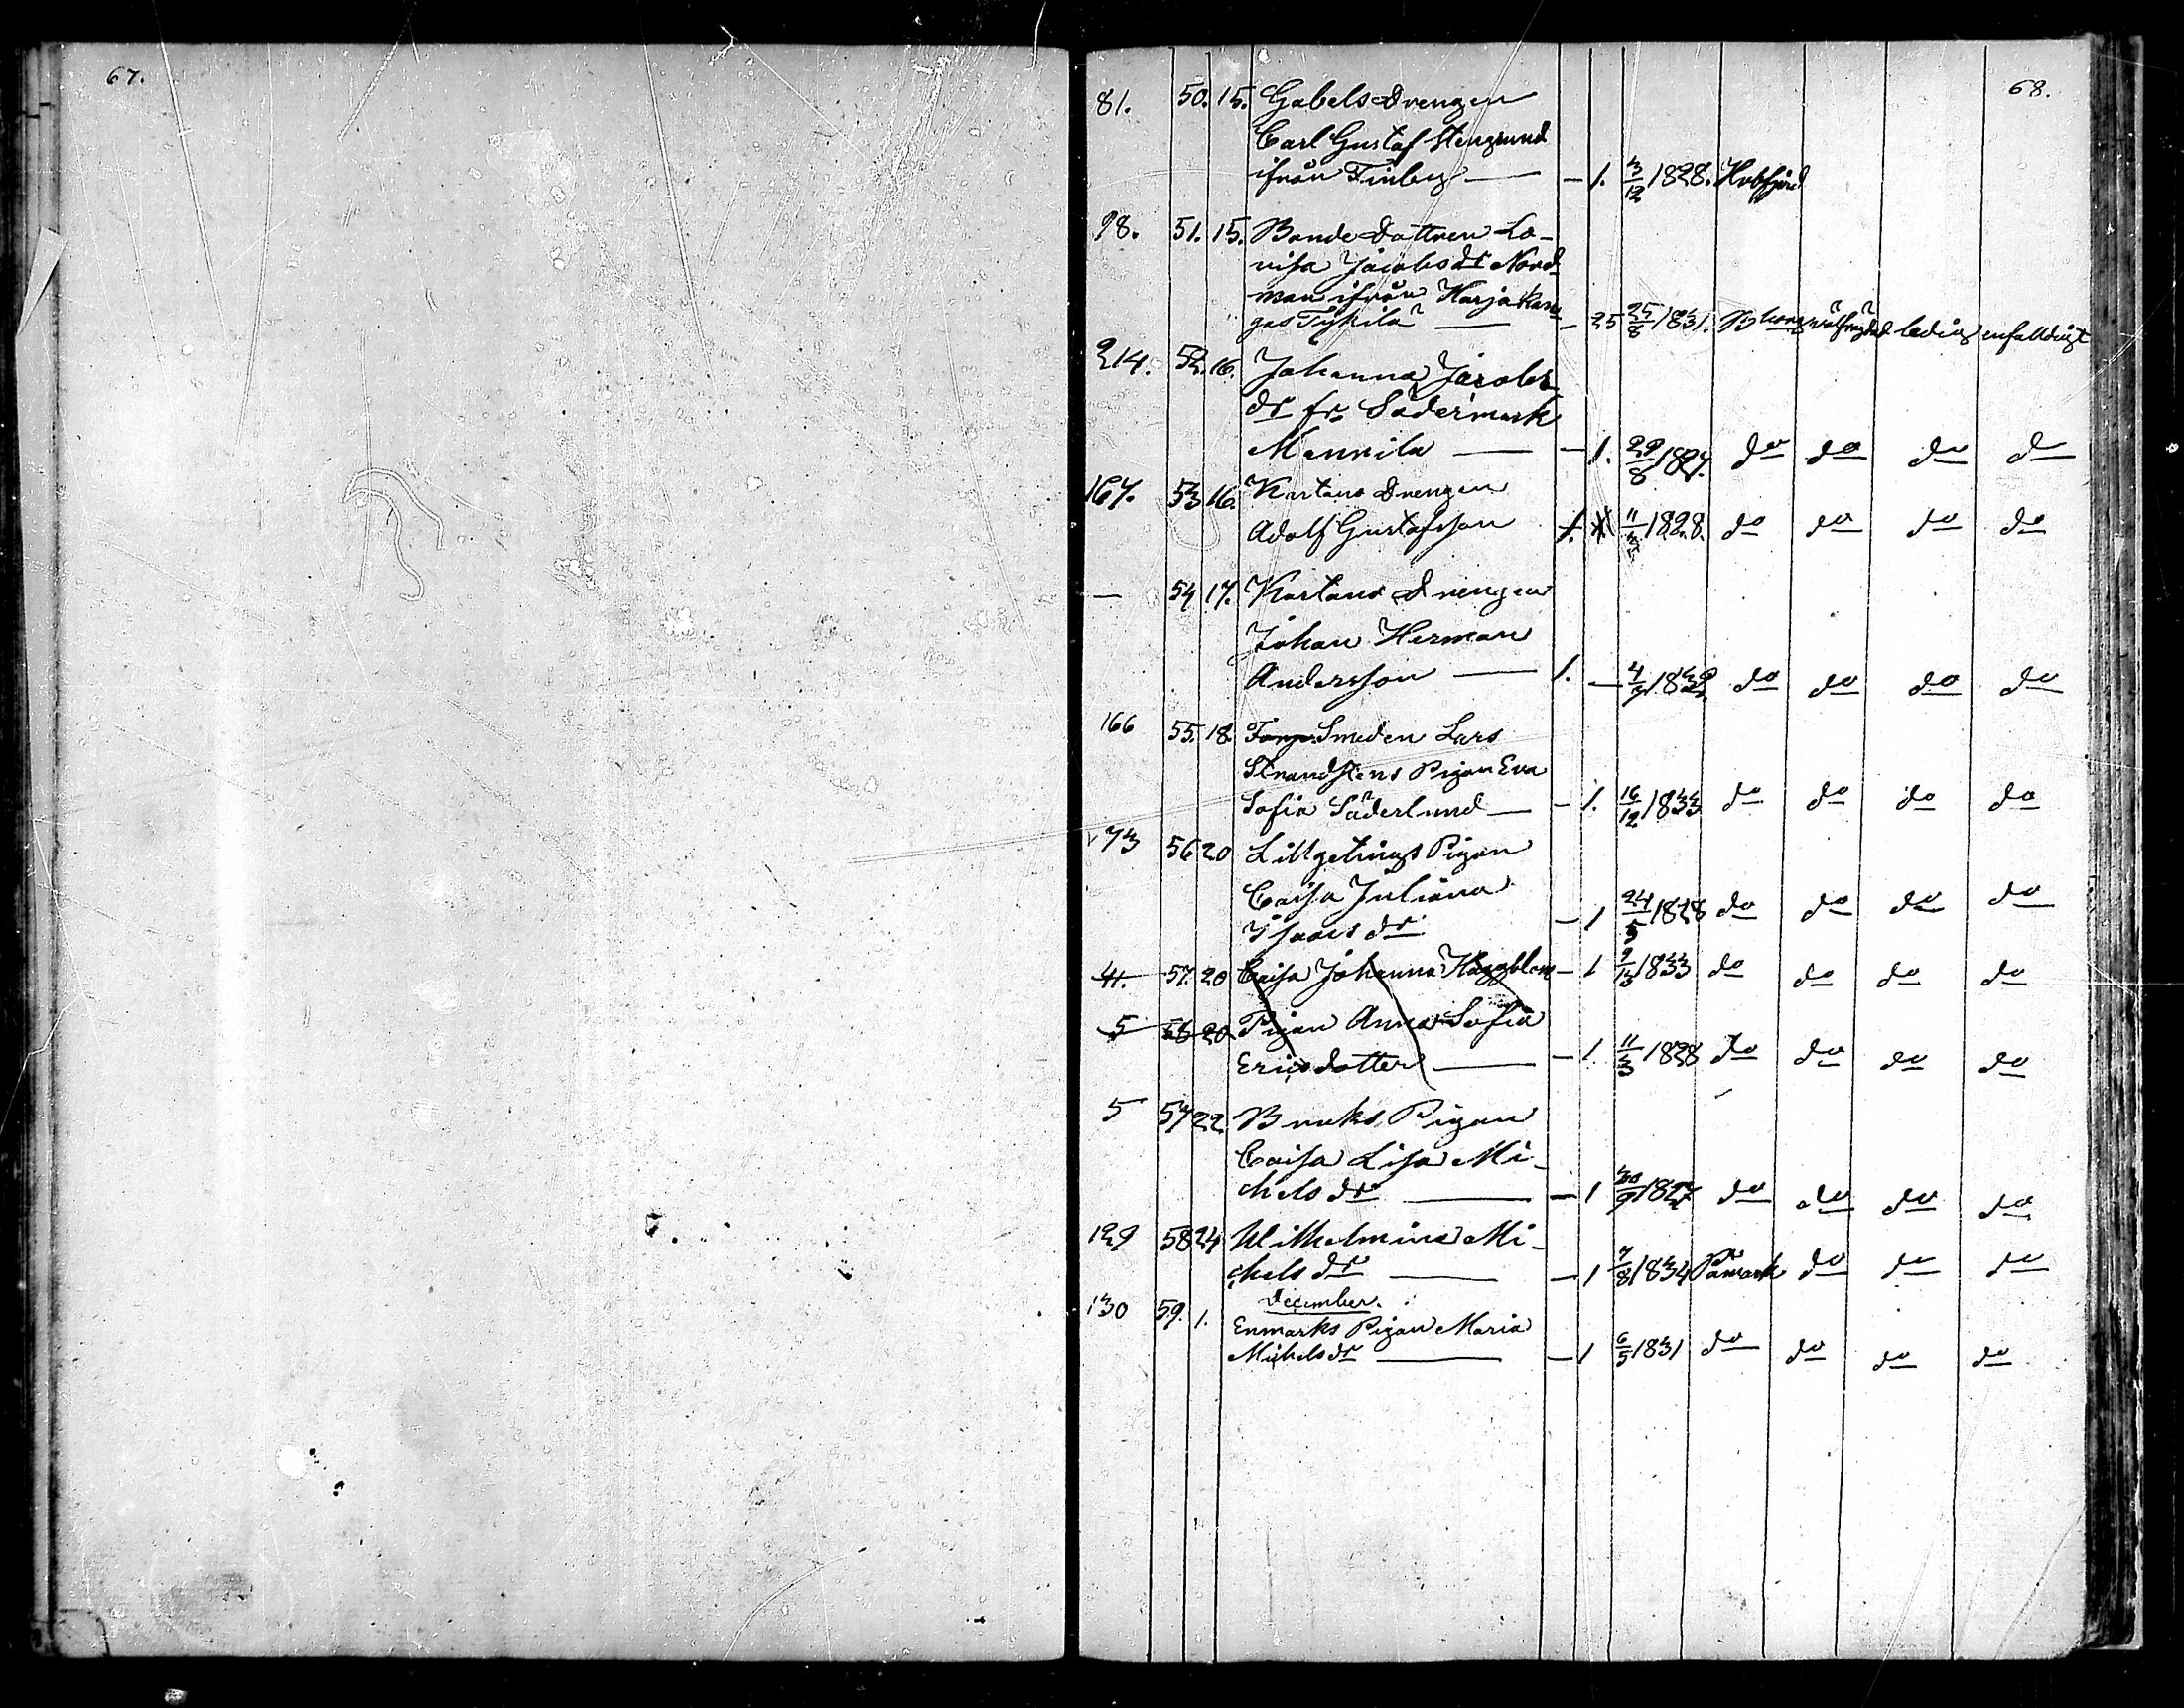 67.
68.
81. 50. 15. Gabels Drengen
Carl Gustaf Stengrund
ifrån Finby — — 1. 3/12 1828.
98. 51. 15. Bonde Dottren Lo-
visa Jacobs dr Nord-
man ifrån Harjakan-
gas — — 25 25/8 1831. ledig enfaldigt
214. 52. 16. Johanna Jacobs
dr fr. Södermark
Mannila — — 1. 29/8 1827. do do do do
167. 53 16. Kartano Drengen
Adolf Gustafsson 1. 11/3 1828. do do do do
— 54 17. Kartano Drengen
Johan Herman
Andersson — 1. — 4/7 do do do do
166 55. 18. Smeden Lars
Strandstens Pigan Eva
Sofia Söderlund — — 1. 16/12 1833 do do do do
73 56 20 Lillgetings Pigan
Caisa Juliana
Isaacs dr — 1 24/5 1828 do do do do
41. 57. 20 Caisa Johanna Häggblom — 1 1833 do do do do
5 58 20 Pigan Anna Sofia
Ericsdotter — — 1 11/3 1828 do do do do
5 57 22 Bruks Pigan
Caisa Lisa Mi-
chels dr — — 1 30/9 1827 do do do do
129 58 24 Wilhelmina Mi-
chels dr — — 1 7/8 1834 Påmark do do do
December.
130 59. 1. Enmarks Pigan Maria
Michels dr — — 1 6/5 1831 do do do do